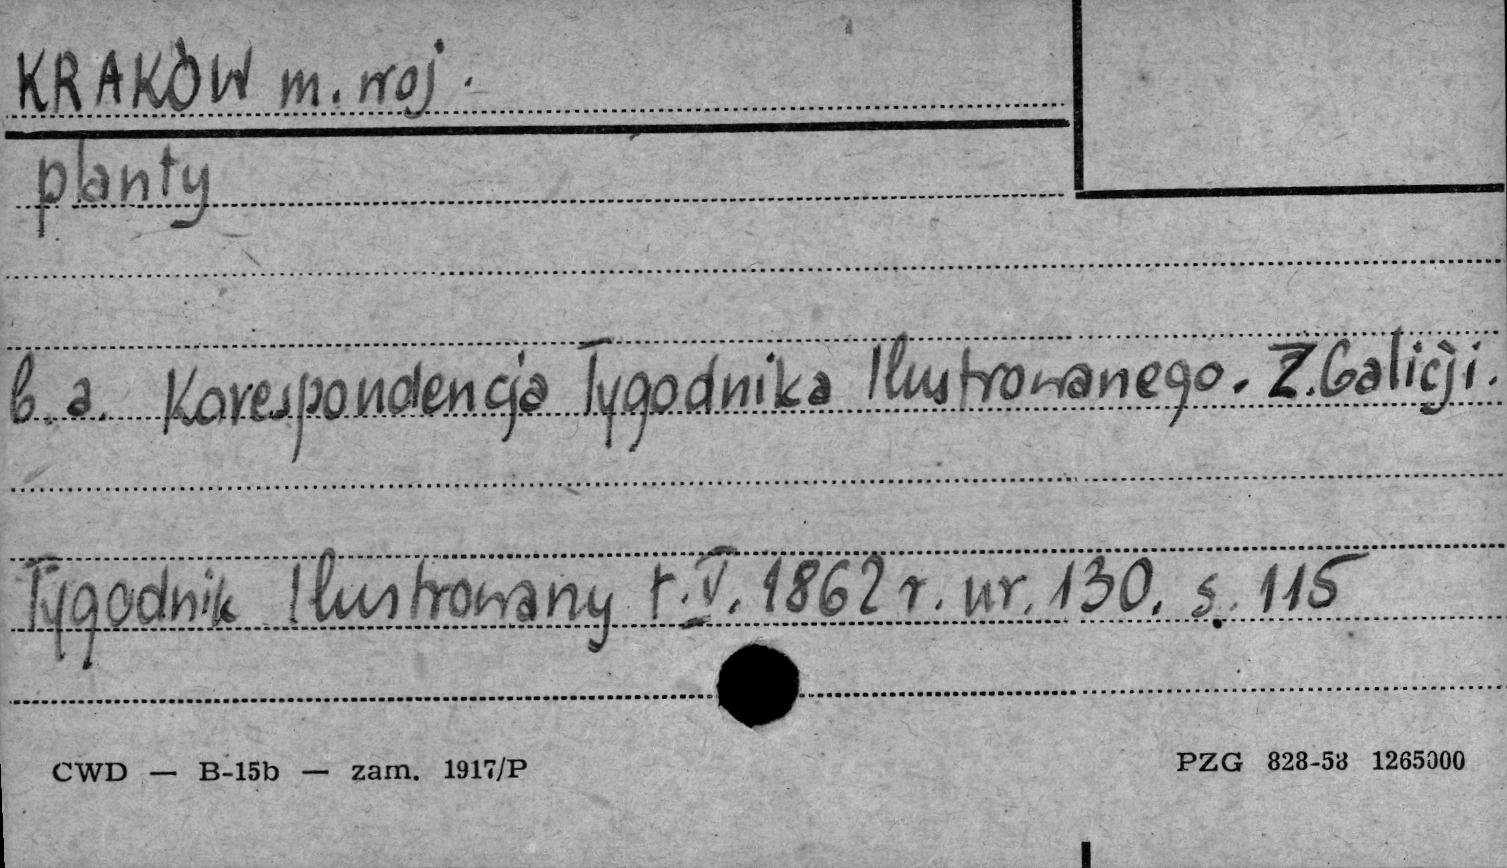 KRAKÓW m. woj.
planty
b. a. Korespondencja Tygodnika Ilustrowanego. Z Galicji.
Tygodnik Ilustrowany t. V. 1862 r. nr. 130. s. 115
CWD — B-15b — zam. 1917/P
PZG 828-53 1265000